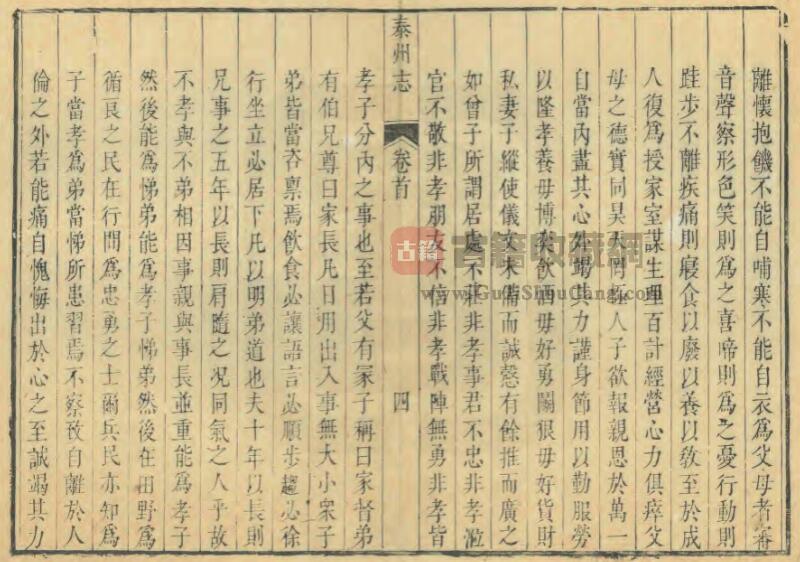 離懷抱饑不能自哺寒不能自衣為父母者審
音聲察形色笑則為之喜啼則為之憂行動則
跬步不離疾痛則寢食以廢以養以教至於成
人復為授家室謀生理百計經營心力俱瘁父
母之德實同昊天罔極人子欲報親恩於萬一
自當內盡其心外竭其力謹身節用以勤服勞
以隆孝養毋博弈飲酒毋好勇鬭狠毋好貨財
私妻子縱使儀文未備而誠慤有餘推而廣之
如曾子所謂居處不莊非孝事君不忠非孝涖
官不敬非孝朋友不信非孝戰陣無勇非孝皆
泰州志 卷首 四
孝子分內之事也至若父有冢子稱曰家督弟
有伯兄尊曰家長凡日用出入事無大小衆子
弟皆當咨稟焉飲食必讓語言必順步趨必徐
行坐立必居下凡以明弟道也夫十年以長則
兄事之五年以長則肩隨之况同氣之人乎故
不孝與不弟相因事親與事長並重能為孝子
然後能為悌弟能為孝子悌弟然後在田野為
循良之民在行間為忠勇之士爾兵民亦知為
子當孝為弟當悌所患習焉不察致自離於人
倫之外若能痛自愧悔出於心之至誠竭其力
古籍
古籍收藏網
www.GuJiShouCang.com